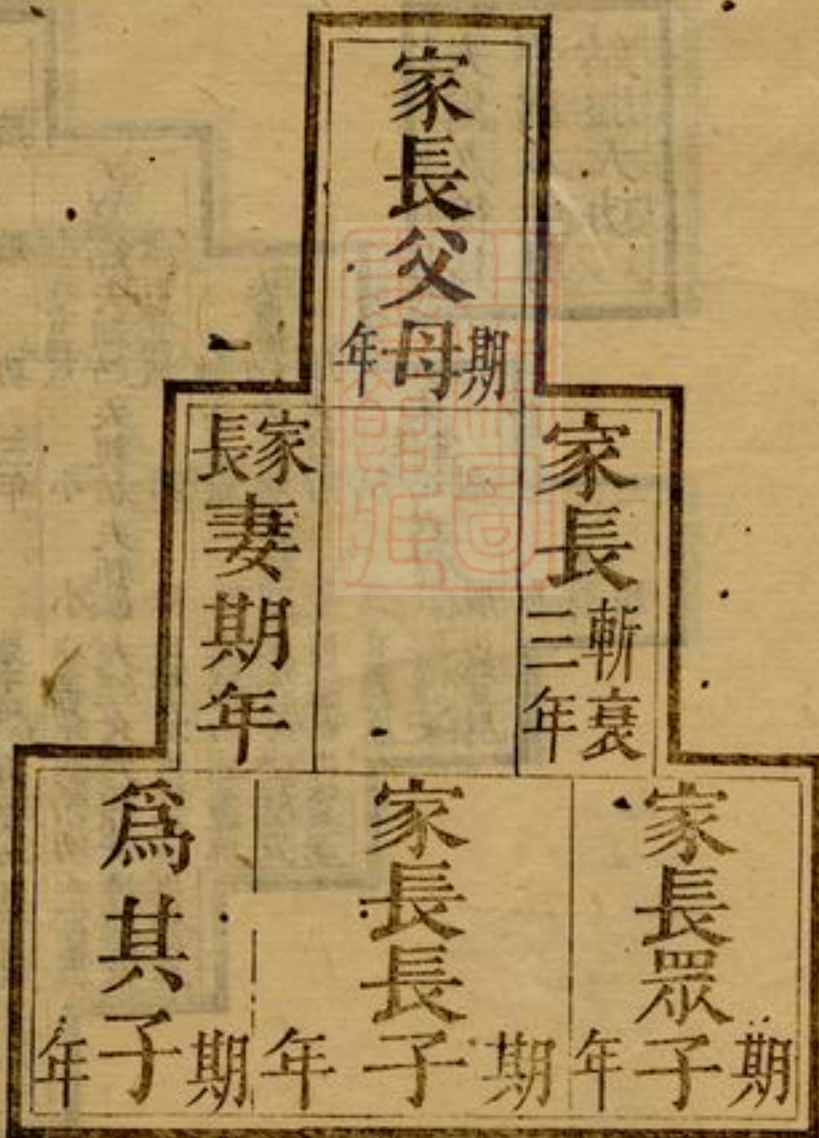 家長父母期年
家長斬衰三年
家長妻期年
家長眾子期年
家長長子期年
為其子期年